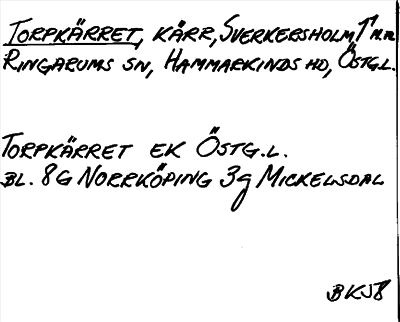 TORPKÄRRET, KÄRR, SVERKERSHOLM,
RINGARUMS SN, HAMMARKINDS HD, ÖSTG.L.
TORPKÄRRET EK ÖSTG.L.
BL. 8G NORRKÖPING 3g MICKELSDAL
BKJB